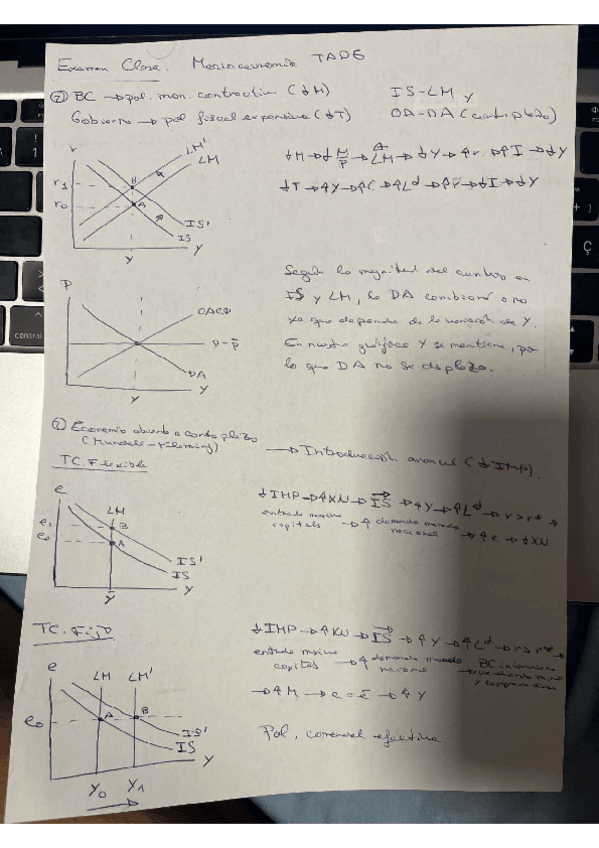 Examen Clase. Macroeconomía TADE
② BC → pol. mon. contractiva (↓M)
Gobierno → pol. fiscal expansiva (↓T)
IS-LM y
OA-DA (corto plazo)
r
LM'
LM
r1
r0
B
A
IS'
IS
Y
Y
↓M → ↓ M/P → LM → ↓Y → ↑r → ↓Y
↓T → ↑Y → ↑C → ↑Lᵈ → ↓I → ↓Y
P
OACP
P = P̄
DA
Y
Y
Según la magnitud del cambio en
IS y LM, la DA cambiará o no
ya que depende de la variación de Y.
En nuestro gráfico Y se mantiene, por
lo que DA no se desplaza.
② Economía abierta a corto plazo
(Mundell-Fleming)
→ Introducción arancel (↓IMP).
TC. Flexible
e
LM
e1
e0
B
A
IS'
IS
Y
Y
↓IMP → ↑XN → IS → ↑Y → ↑Lᵈ → r > r* →
entrada capitals → ↑ demanda moneda nacional → ↑e → ↓XN
TC. Fijo
e
LM LM'
e0
A
B
IS'
IS
Y
Y0 Y1
↓IMP → ↑XN → IS → ↑Y → ↑Lᵈ → r > r* →
entrada capitals → ↑ demanda moneda → BC
→ ↑M → e = ē → ↑Y
Pol. comercial efectiva
control
Ç